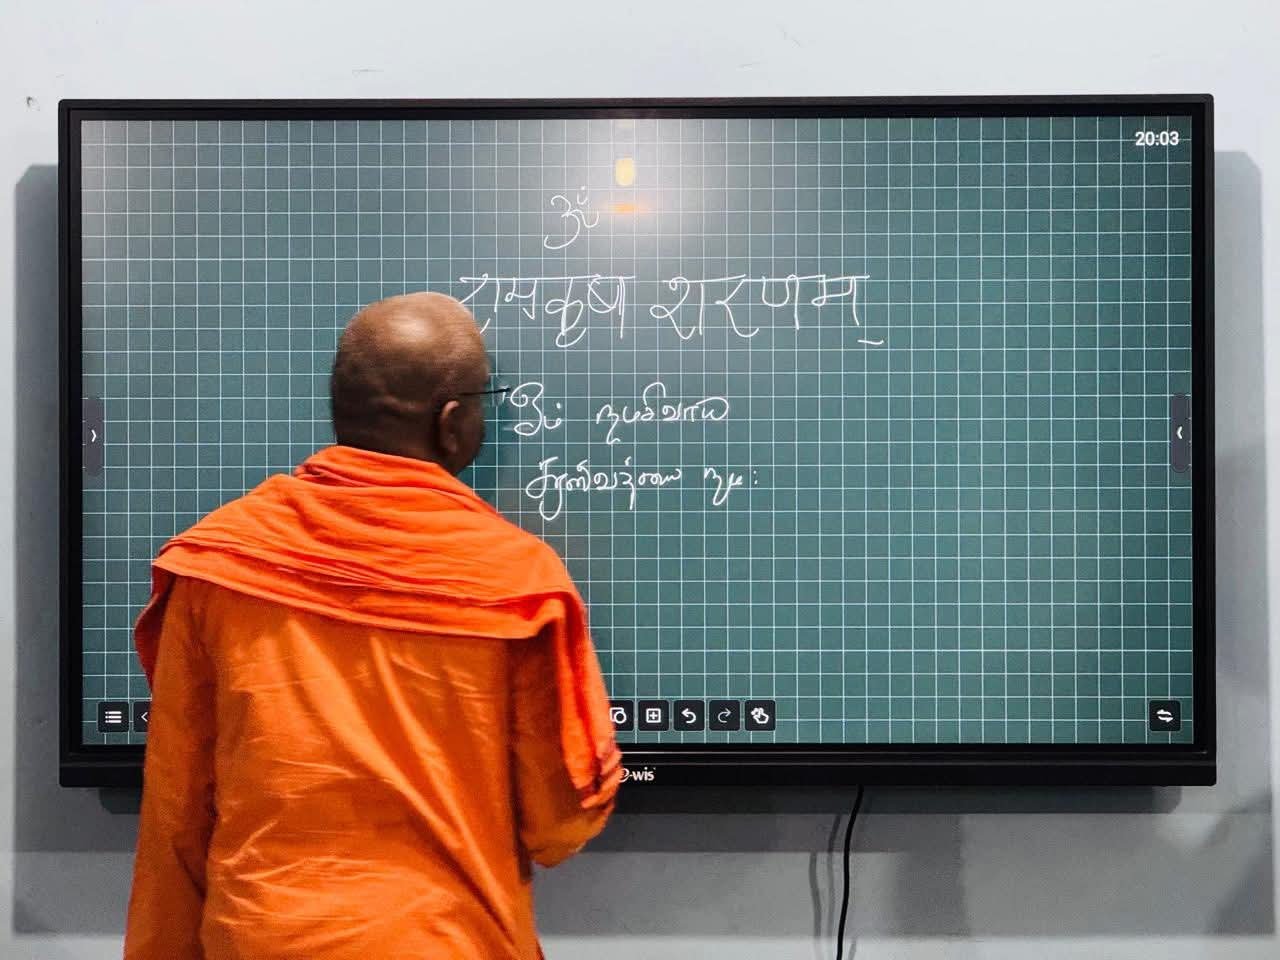 20:03
ॐ
रामकृष्ण शरणम्
ஓம் நமசிவாய
நம:
e-wis